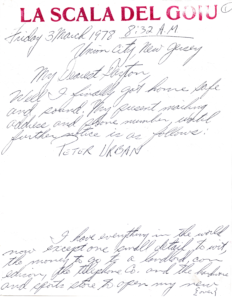 LA SCALA DEL GOIU
Friday 3 March 1978 8:32 A.M
Union City, New Jersey
My Dearest
Well I finally got home safe
and sound. My present mailing
address and phone number, until
further notice is as follows:
PETER URBAN
I have everything in the world
now except one small detail: to wit,
the money to go to a landlord, con
edison, the telephone Co. and the hardware
and sports store to open my new
(over)